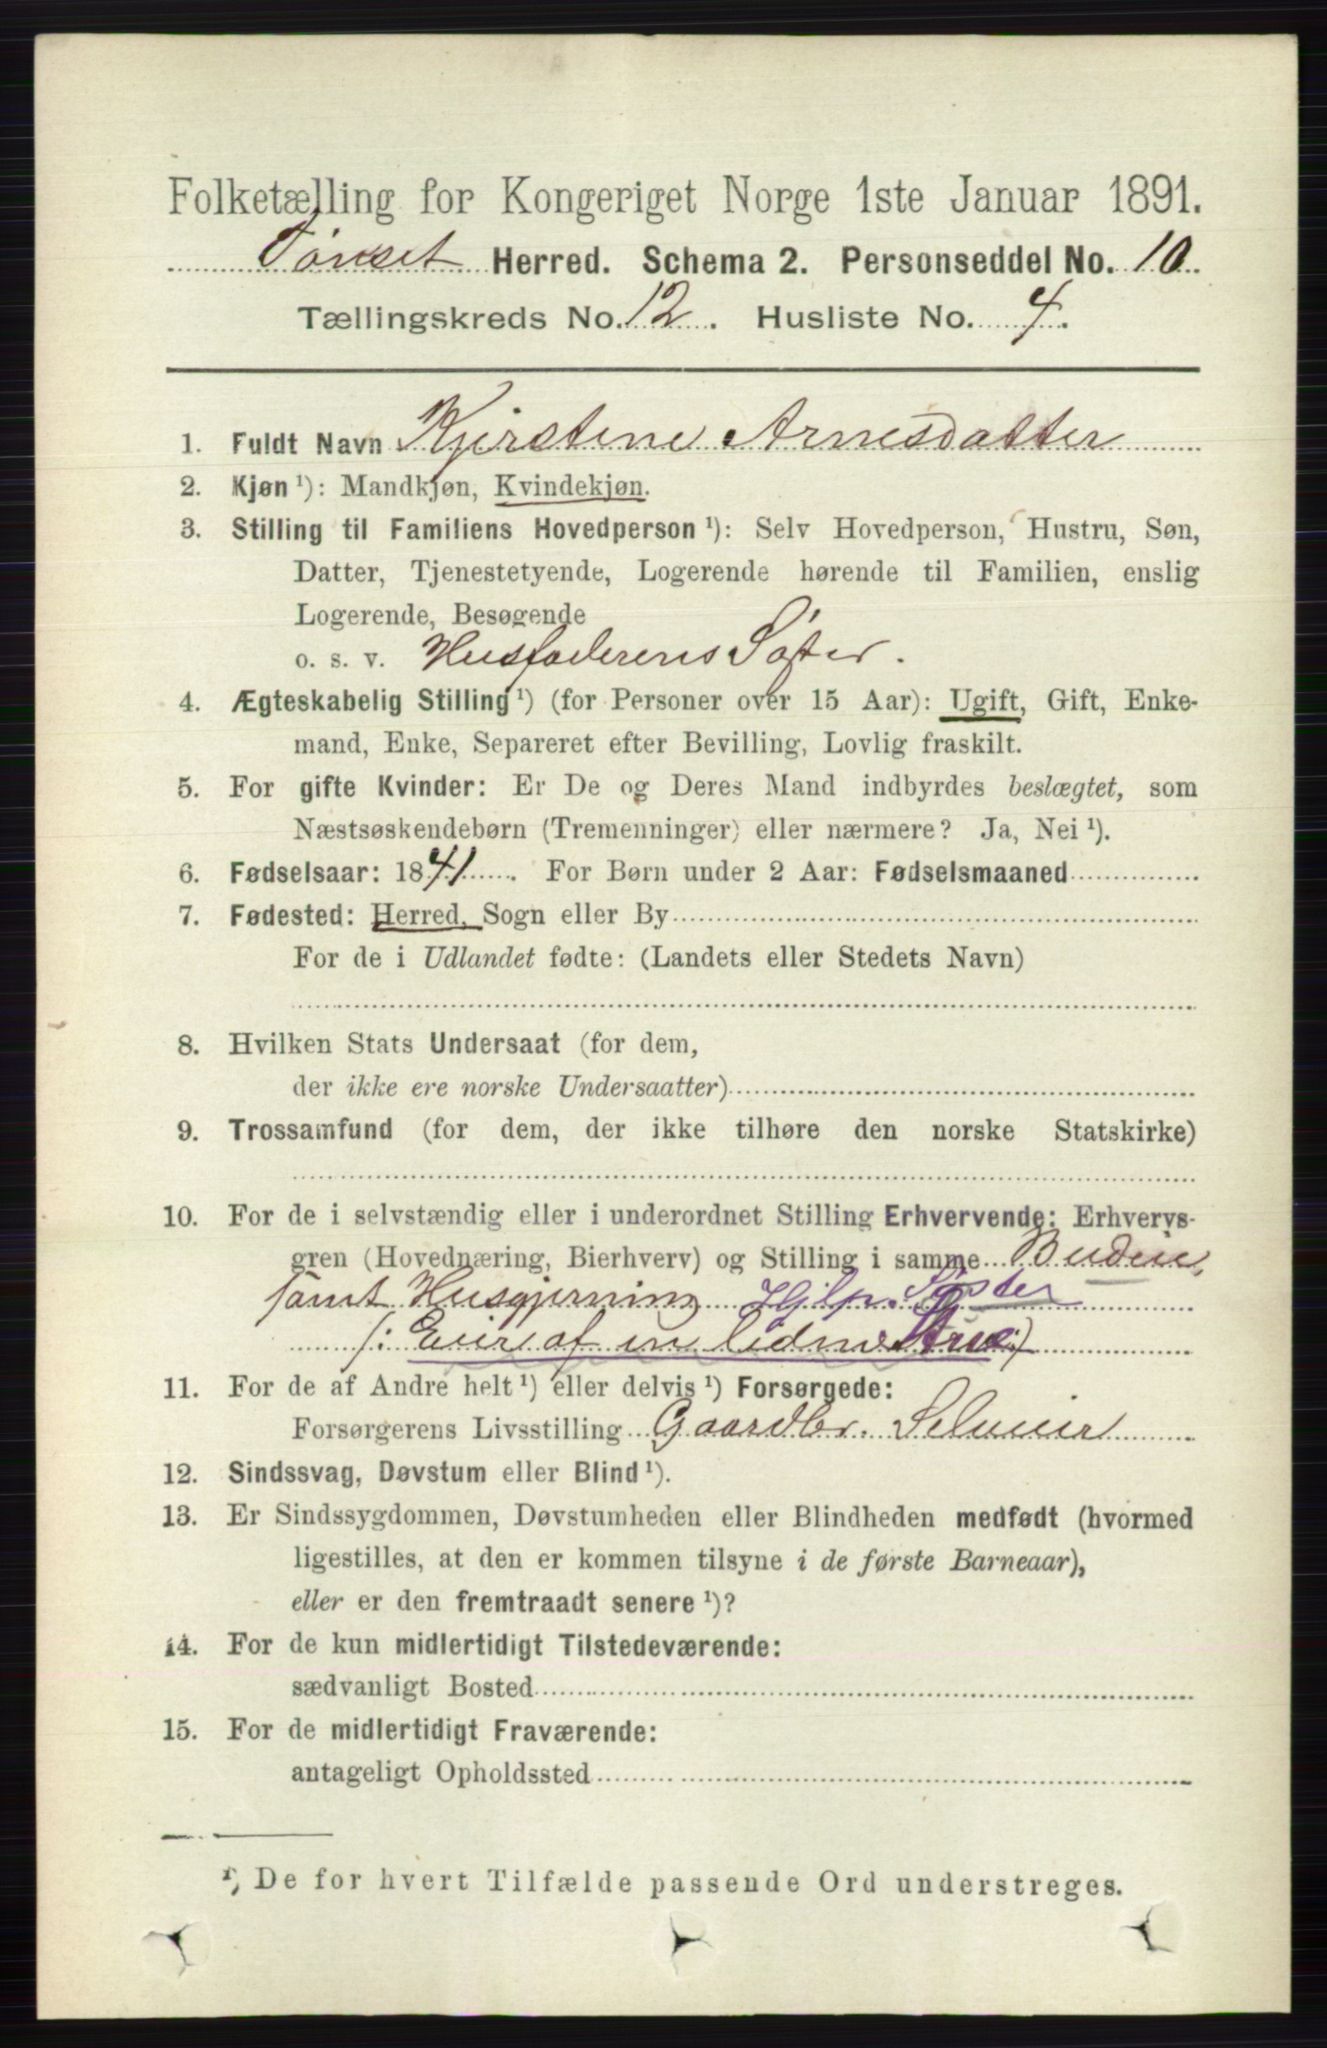 Folketælling for Kongeriget Norge 1ste Januar 1891.
Tønset Herred. Schema 2. Personseddel No. 10.
Tællingskreds No. 12. Husliste No. 4.
1. Fuldt Navn Kjerstine Arnesdatter
2. Kjøn ¹): Mandkjøn, Kvindekjøn.
3. Stilling til Familiens Hovedperson ¹): Selv Hovedperson, Hustru, Søn,
Datter, Tjenestetyende, Logerende hørende til Familien, enslig
Logerende, Besøgende
o. s. v. Husfaderens Søster.
4. Ægteskabelig Stilling ¹) (for Personer over 15 Aar): Ugift, Gift, Enke-
mand, Enke, Separeret efter Bevilling, Lovlig fraskilt.
5. For gifte Kvinder: Er De og Deres Mand indbyrdes beslægtet, som
Næstsøskendebørn (Tremenninger) eller nærmere? Ja, Nei ¹).
6. Fødselsaar: 1841. For Børn under 2 Aar: Fødselsmaaned
7. Fødested: Herred, Sogn eller By
For de i Udlandet fødte: (Landets eller Stedets Navn)
8. Hvilken Stats Undersaat (for dem,
der ikke ere norske Undersaatter)
9. Trossamfund (for dem, der ikke tilhøre den norske Statskirke)
10. For de i selvstændig eller i underordnet Stilling Erhvervende: Erhvervs-
gren (Hovednæring, Bierhverv) og Stilling i samme Budeie,
samt Husgjerning Hjlp. Søster
/: Eier af en liden Arv :/
11. For de af Andre helt ¹) eller delvis ¹) Forsørgede:
Forsørgerens Livsstilling Gaardbr. Selveier
12. Sindssvag, Døvstum eller Blind ¹).
13. Er Sindssygdommen, Døvstumheden eller Blindheden medfødt (hvormed
ligestilles, at den er kommen tilsyne i de første Barneaar),
eller er den fremtraadt senere ¹)?
14. For de kun midlertidigt Tilstedeværende:
sædvanligt Bosted
15. For de midlertidigt Fraværende:
antageligt Opholdssted
¹) De for hvert Tilfælde passende Ord understreges.